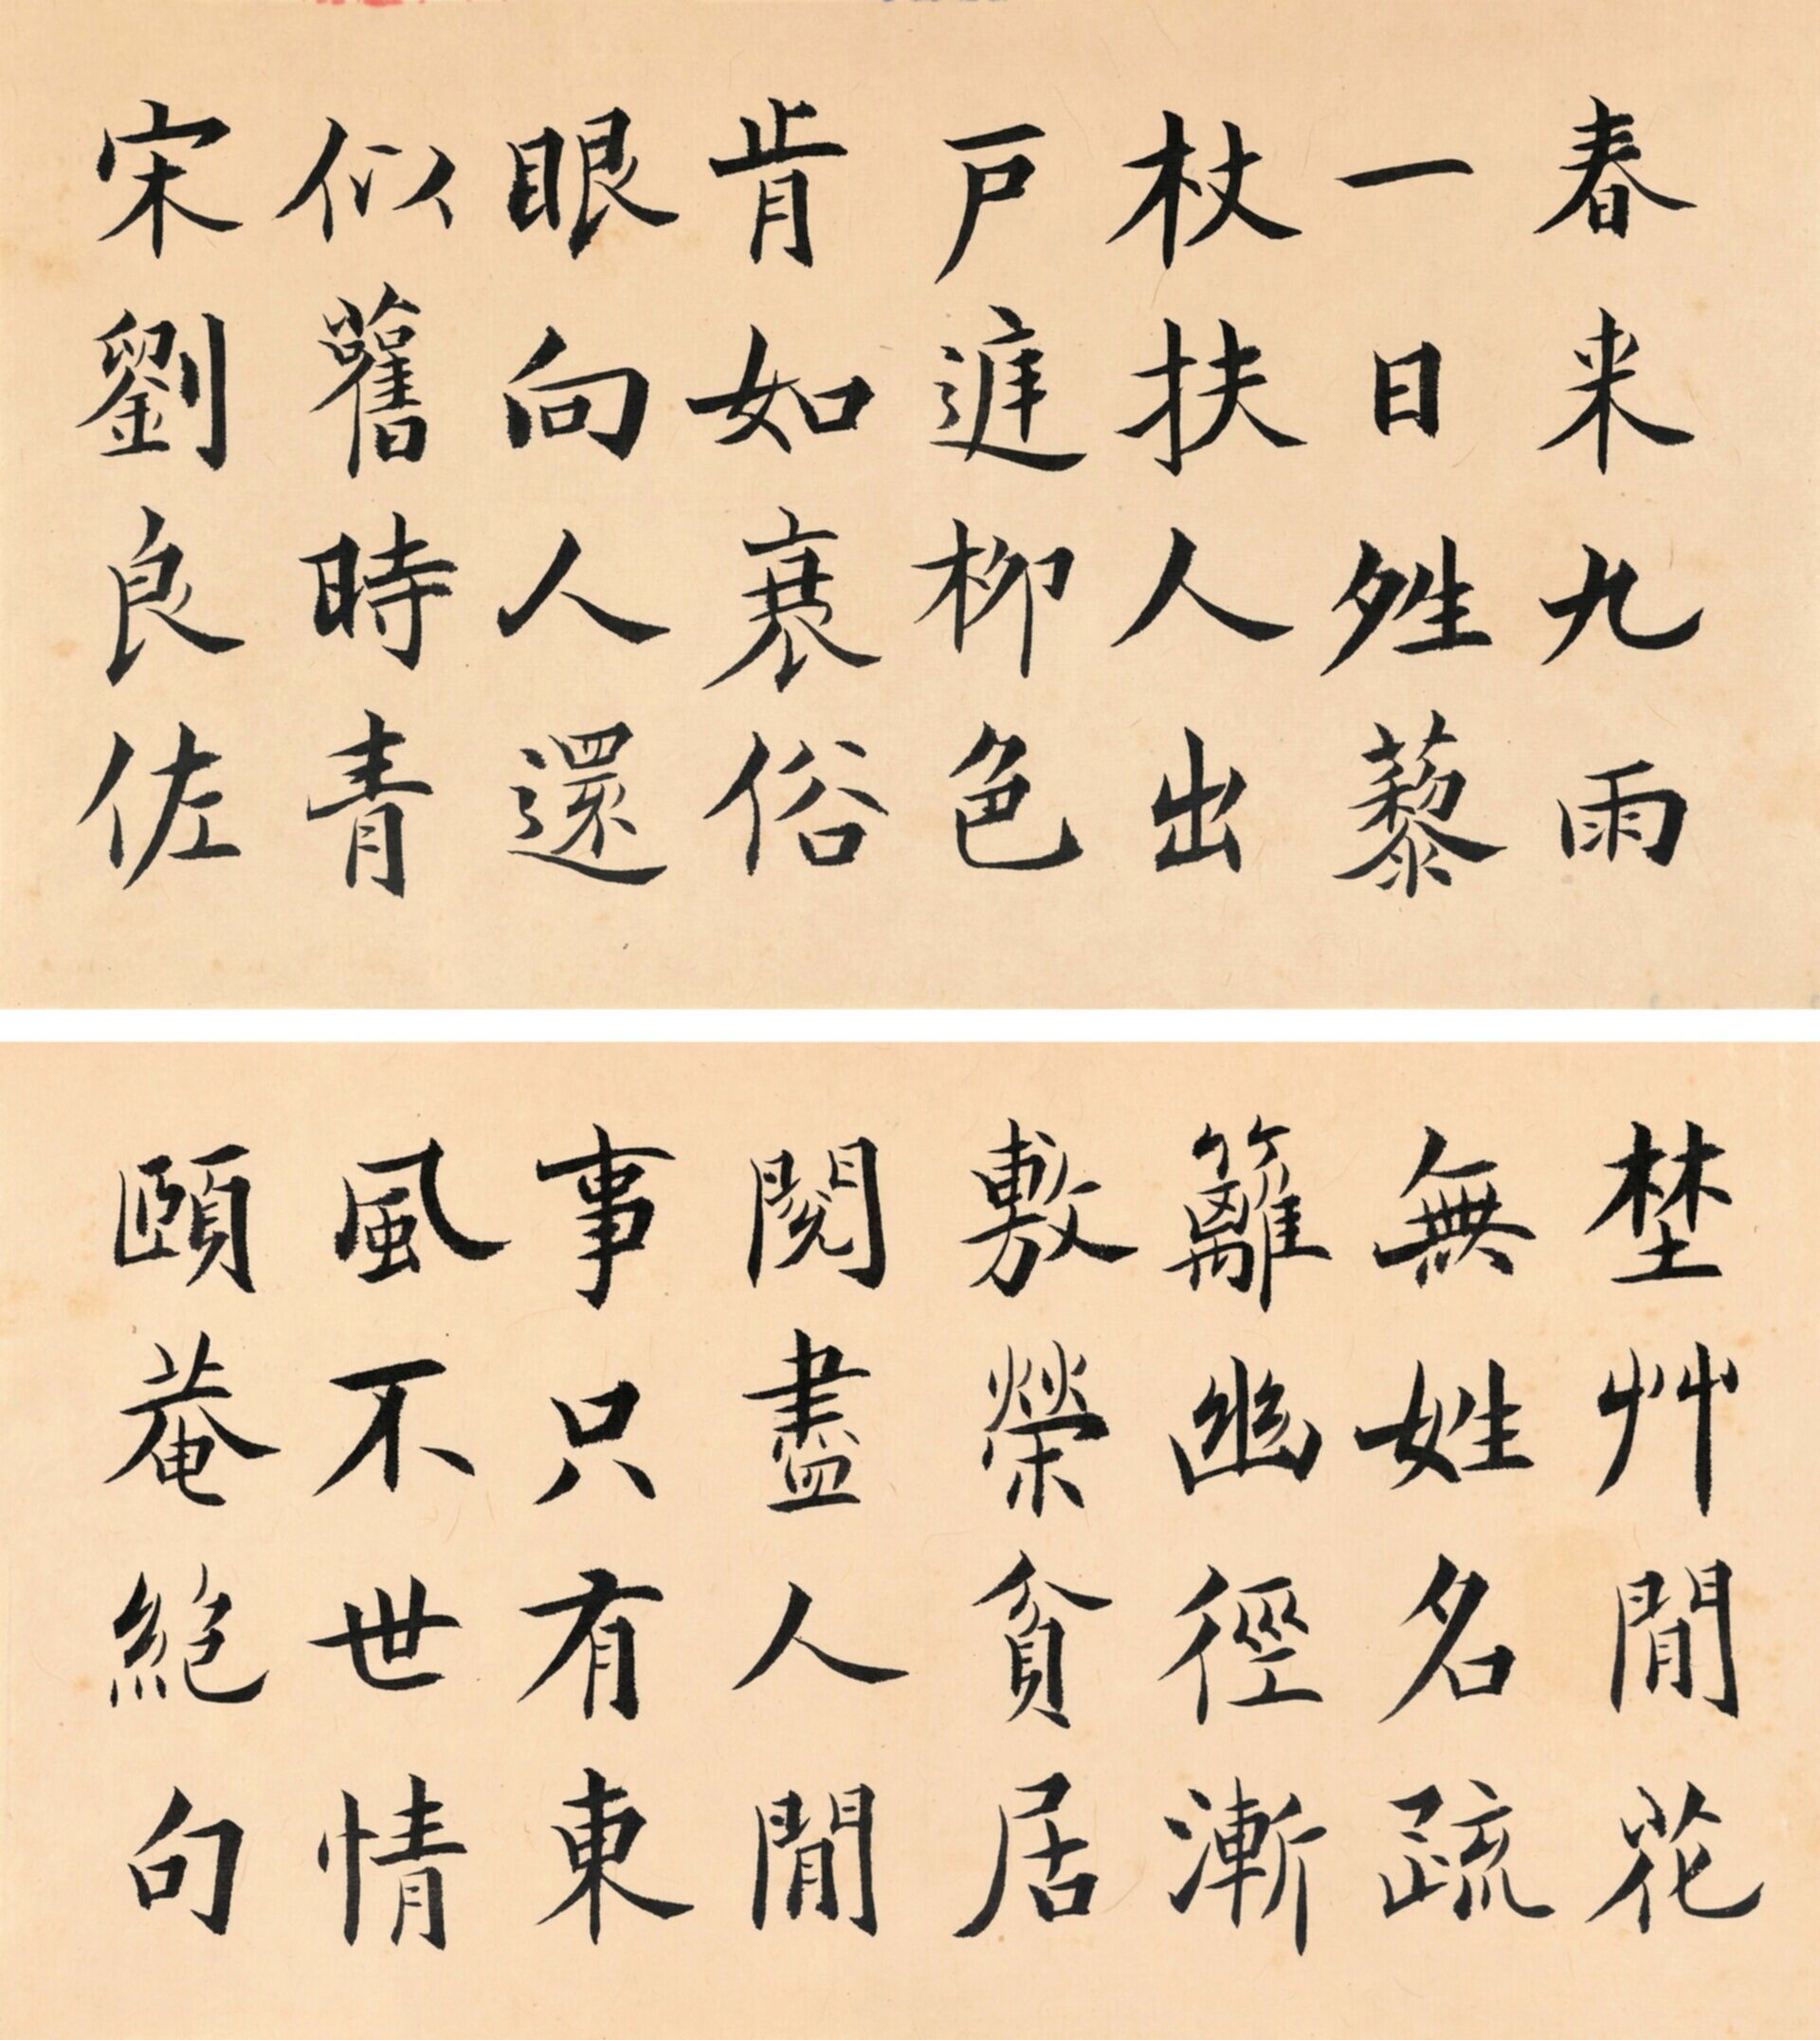 春来九雨
一日殅藜
杖扶人出
戶迋柳色
肯如衰俗
眼向人還
似舊時青
宋劉良佐
埜艸閒花
無姓名疏
籬幽徑漸
敷榮貧居
閱盡人閒
事只有東
風不世情
頤菴絕句